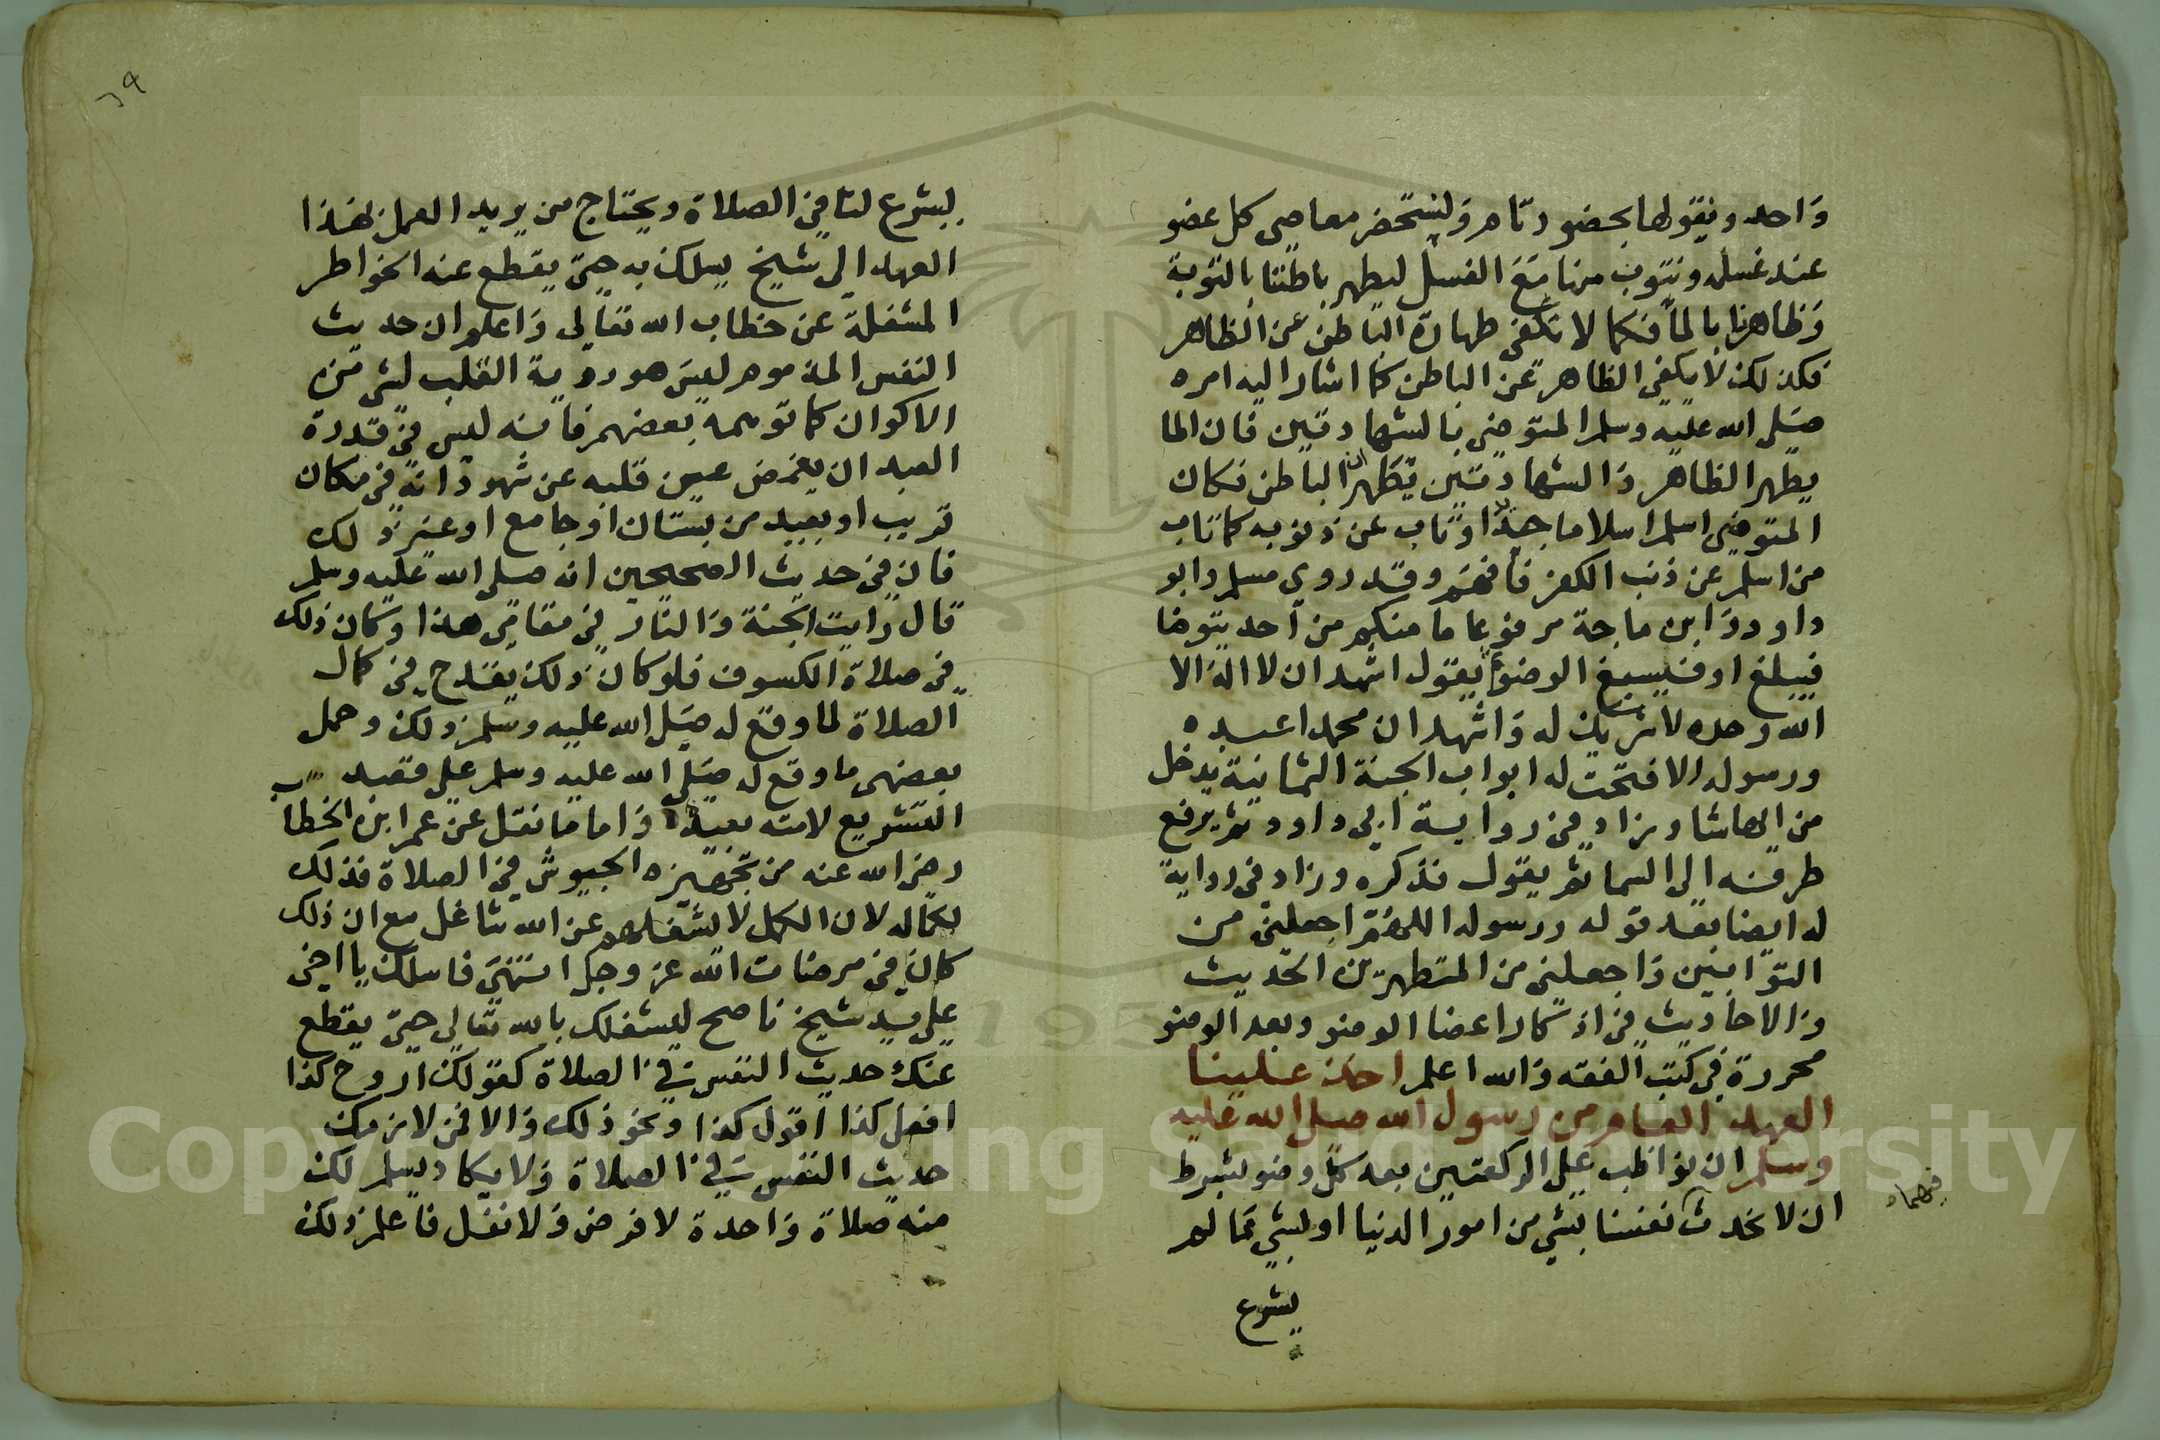 واحد ونقولها بحضور تام ونستحضر معاصي كل عضو
عند غسله ونتوب منها مع الغسل ليطهر باطننا بالتوبة
وظاهرنا بالماء فكما لا تكفي طهارة الباطن عن الظاهر
فكذلك لا يكفي الظاهر عن الباطن كما اشار اليه امره
صلى الله عليه وسلم المتوضي بالشهادتين فان الما
يطهر الظاهر والشهادتين تطهران الباطن فكان
المتوضي اسلم اسلاما جديدا او تاب عن ذنوبه كما تاب
من اسلم عن ذنب الكفر فافهم وقد روى مسلم وابو
داود وابن ماجة مرفوعا ما منكم من احد يتوضا
فيبلغ او فيسبغ الوضوء يقول اشهد ان لا اله الا
الله وحده لا شريك له واشهد ان محمدا عبده
ورسوله الا فتحت له ابواب الجنة الثمانية يدخل
من ايها شا وزاد في رواية ابي داود ثم يرفع
طرفه الى السما ثم يقول فذكره وزاد في رواية
له ايضا بعد قوله ورسوله اللهم اجعلني من
التوابين واجعلني من المتطهرين الحديث
والاحاديث في اذكار اعضا الوضو وبعد الوضو
محررة في كتب الفقه والله اعلم اخذ علينا
العهد العام من رسول الله صلى الله عليه
وسلم ان نواظب على الركعتين بعد كل وضو بشرط
ان لا نحدث نفسنا بشي من امور الدنيا او بشي مما لم
فيهما
يشرع
٢٩
يشرع لنا في الصلاة ويحتاج من يريد العمل بهذا
العهد الى شيخ يسلك به حتى يقطع عنه الخواطر
المشغلة عن خطاب الله تعالى واعلم ان حديث
النفس المذموم ليس هو روية القلب لشي من
الاكوان كما توهمه بعضهم فانه ليس في قدرة
العبد ان يغمض عين قلبه عن شهود انه في مكان
قريب او بعيد من بستان او جامع او غير ذلك
فان في حديث الصحيحين انه صلى الله عليه وسلم
قال رايت الجنة والنار في مقامي هذا وكان ذلك
في صلاة الكسوف فلو كان ذلك يقدح في كمال
الصلاة لما وقع له صلى الله عليه وسلم ذلك وحمل
بعضهم ما وقع له صلى الله عليه وسلم على قصد
التشريع لامته بعيد واما ما نقل عن عمر ابن الخطاب
رضي الله عنه من تجهيزه الجيوش في الصلاة فذلك
لكماله لان الكمل لا يشغلهم عن الله شاغل مع ان ذلك
كان في مرضات الله عز وجل انتهى فاسلك يا اخي
على يد شيخ ناصح ليشغلك بالله تعالى حتى يقطع
عنك حديث النفس في الصلاة كقولك اروح كذا
افعل كذا اقول كذا ونحو ذلك والا فمن لازمك
حديث النفس في الصلاة ولا يكاد يسلم لك
منه صلاة واحدة لا فرض ولا نفل فاعلم ذلك
Copyright © King Saud University